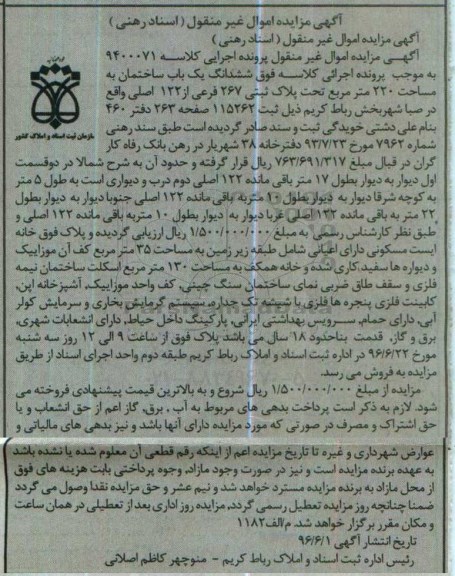 آگهی مزایده اموال غیر منقول (اسناد رهنی)
آگهی مزایده اموال غیر منقول (اسناد رهنی)
آگهی مزایده اموال غیر منقول پرونده اجرایی کلاسه ۹۴۰۰۰۷۱
به موجب پرونده اجرائی کلاسه فوق ششدانگ یک باب ساختمان به
مساحت ۲۲۰ متر مربع تحت پلاک ثبتی ۲۶۷ فرعی از ۱۲۲ اصلی واقع
در صبا شهر بخش رباط کریم ذیل ثبت ۱۱۵۲۶۲ صفحه ۲۶۳ دفتر ۴۶۰
بنام علی دشتی خویدگی ثبت و سند صادر گردیده است طبق سند رهنی
شماره ۷۹۶۲ مورخ ۹۳/۷/۲۳ دفترخانه ۳۸ شهریار در رهن بانک رفاه کار
گران در قبال مبلغ ۷۶۳/۶۹۱/۳۱۷ ریال قرار گرفته و حدود آن به شرح شمالا در دوقسمت
اول دیوار به دیوار بطول ۱۷ متر باقی مانده ۱۲۲ اصلی دوم درب و دیواری است به طول ۵ متر
به کوچه شرقا دیوار به دیوار بطول ۱۰ متر به باقی مانده ۱۲۲ اصلی جنوبا دیوار به دیوار بطول
۲۲ متر به باقی مانده ۱۲۲ اصلی غربا دیوار به دیوار بطول ۱۰ متر به باقی مانده ۱۲۲ اصلی و
طبق نظر کارشناس رسمی به مبلغ ۱/۵۰۰/۰۰۰/۰۰۰ ریال ارزیابی گردیده و پلاک فوق خانه
ایست مسکونی دارای اعیانی شامل طبقه زیر زمین به مساحت ۳۵ متر مربع کف آن موزاییک
و دیواره ها سفید کاری شده و خانه همکف به مساحت ۱۳۰ متر مربع اسکلت ساختمان نیمه
فلزی و سقف طاق ضربی نمای ساختمان سنگ چینی, کف واحد موزاییک, آشپزخانه اپن,
کابینت فلزی پنجره ها فلزی با شیشه تک جداره, سیستم گرمایش بخاری و سرمایش کولر
آبی, دارای حمام, سرویس بهداشتی ایرانی, پارکینگ داخل حیاط, دارای انشعابات شهری,
برق و گاز, قدمت بناحدود ۱۸ سال می باشد پلاک فوق از ساعت ۹ الی ۱۲ روز سه شنبه
مورخ ۹۶/۶/۲۲ در اداره ثبت اسناد و املاک رباط کریم طبقه دوم واحد اجرای اسناد از طریق
مزایده به فروش می رسد.
مزایده از مبلغ ۱/۵۰۰/۰۰۰/۰۰۰ ریال شروع و به بالاترین قیمت پیشنهادی فروخته می
شود. لازم به ذکر است پرداخت بدهی های مربوط به آب, برق, گاز اعم از حق انشعاب و یا
حق اشتراک و مصرف در صورتی که مورد مزایده دارای آنها باشد و نیز بدهی های مالیاتی و
عوارض شهرداری و غیره تا تاریخ مزایده اعم از اینکه رقم قطعی آن معلوم شده یا نشده باشد
به عهده برنده مزایده است و نیز در صورت وجود مازاد, وجوه پرداختی بابت هزینه های فوق
از محل مازاد به برنده مزایده مسترد خواهد شد و نیم عشر و حق مزایده نقدا وصول می گردد
ضمنا چنانچه روز مزایده تعطیل رسمی گردد, مزایده روز اداری بعد از تعطیلی در همان ساعت
و مکان مقرر برگزار خواهد شد. م/الف۱۱۸۲
تاریخ انتشار آگهی ۹۶/۶/۱
رئیس اداره ثبت اسناد و املاک رباط کریم - منوچهر کاظم اصلانی
سازمان ثبت اسناد و املاک کشور